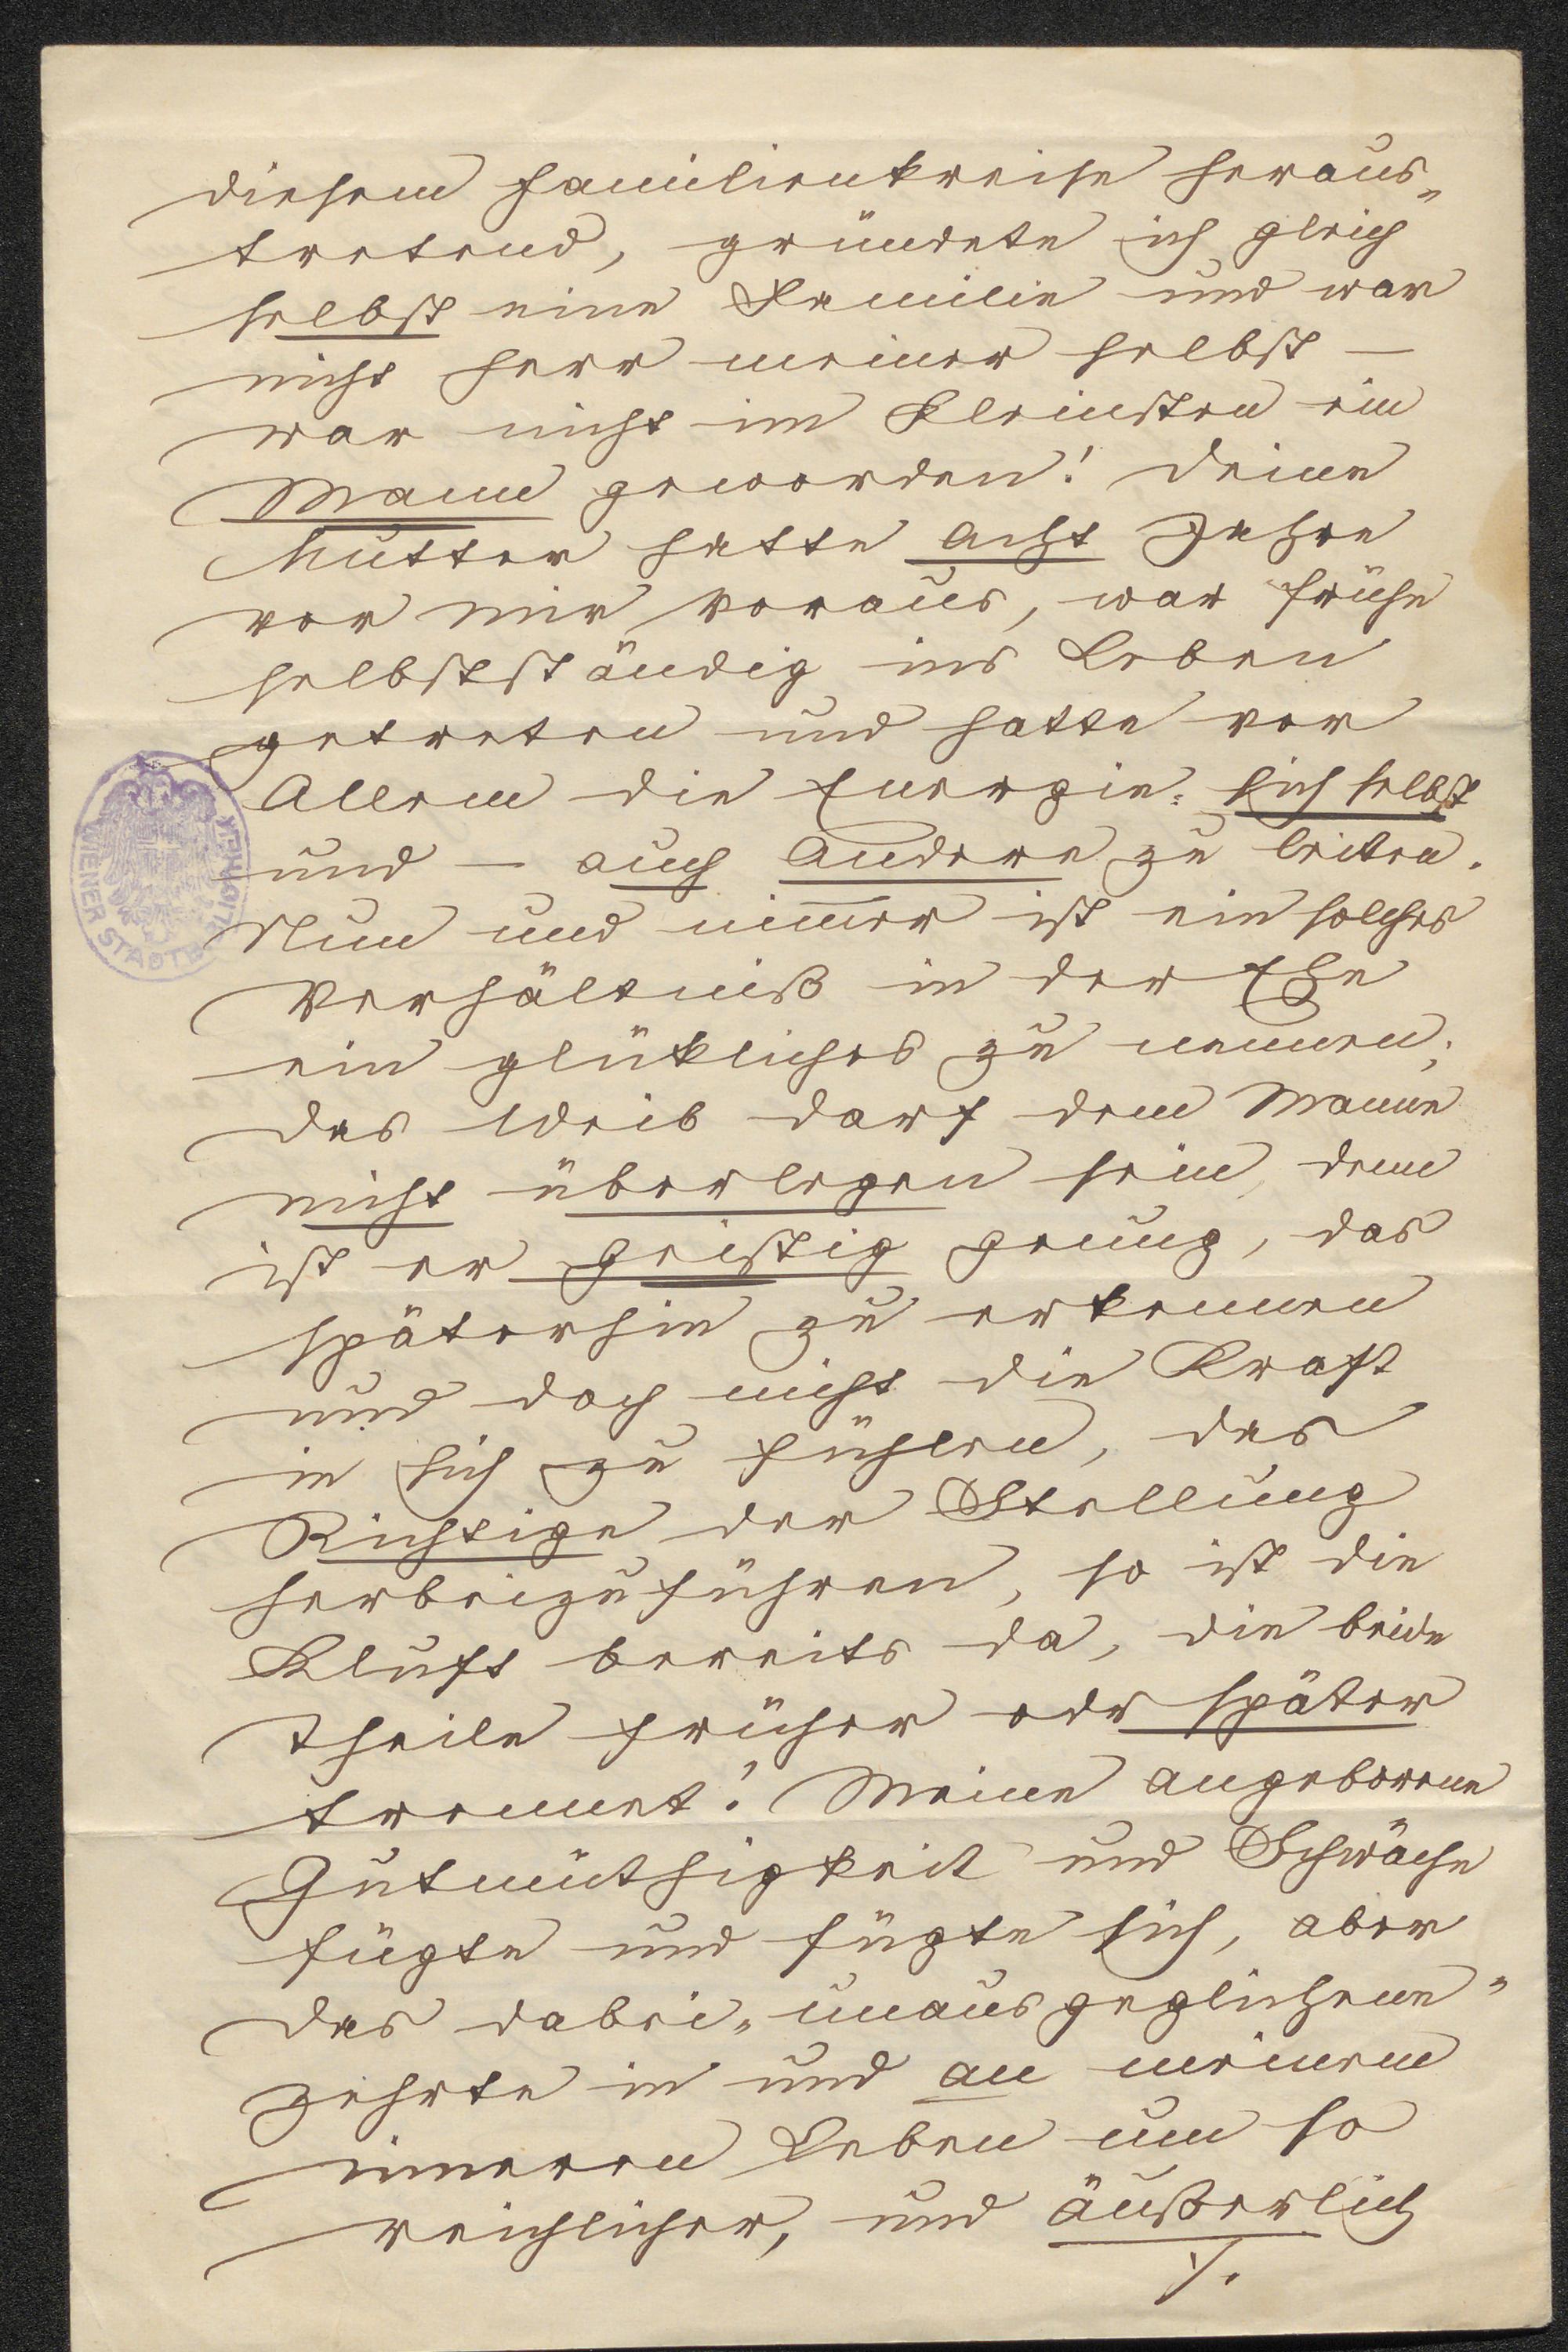 diesem Familienkreise heraus„
tretend, gründete ich gleich
selbst eine Familie und war
nicht Herr meiner selbst —
war nicht im Kleinsten ein
Mann geworden! Deine
Mutter hatte acht Jahre
vor mir voraus, war frühe
selbstständig ins Leben
getreten und hatte vor
Allem die Energie: sich selbst
und — auch Andere zu leiten.
Nun und nim̅er ist ein solches
Verhältniß in der Ehe
ein glükliches zu nennen;
das Weib darf dem Manne
nicht überlegen sein, denn
ist er geistig genug, das
späterhin zu erkennen
und doch nicht die Kraft
in sich zu fühlen, das
Richtige der Stellung
herbeizuführen, so ist die
Kluft bereits da, die beide
Theile früher odr später
trennet! Meine angeborene
Gutmüthigkeit und Schwäche
fügte und fügte sich, aber
das dabei „unausgeglichene"
zehrte in und an meinem
inneren Leben um so
reichlicher, und äußerlich
./.
WIENER STADTBIBLIOTHEK